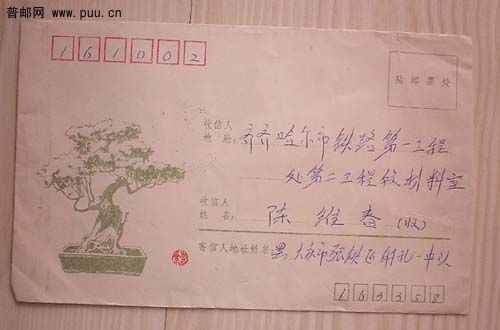 普邮网
www.puu.cn
161002
贴邮票处
收信人
地址：齐齐哈尔市铁路第一工程
处第二工程段材料室
收信人
姓名：陈维香（收）
寄信人地址姓名：黑 大庆市张铁匠射孔一中队
163358